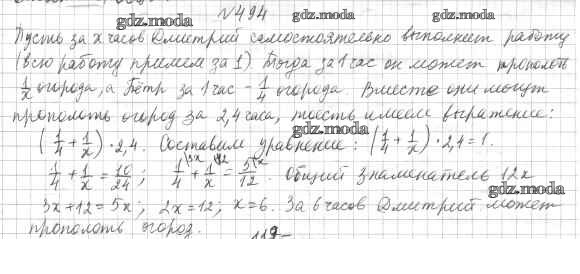 № 494
gdz.moda
gdz.moda
Пусть за x часов Дмитрий самостоятельно выполнит работу
(всю работу примем за 1). Тогда за 1 час он может прополоть
gdz.moda
1/x огорода, а Пётр за 1 час - 1/4 огорода. Вместе они могут
прополоть огород за 2,4 часа, тоесть имеем выражение:
gdz.moda
(1/4 + 1/x) · 2,4. Составим уравнение: (1/4 + 1/x) · 2,4 = 1.
1/4 + 1/x = 10/24; 1/4 \3x + 1/x \12 = 5/12 \x. Общий знаменатель 12x
gdz.moda
3x + 12 = 5x; 2x = 12; x = 6. За 6 часов Дмитрий может
прополоть огород.
gdz.moda